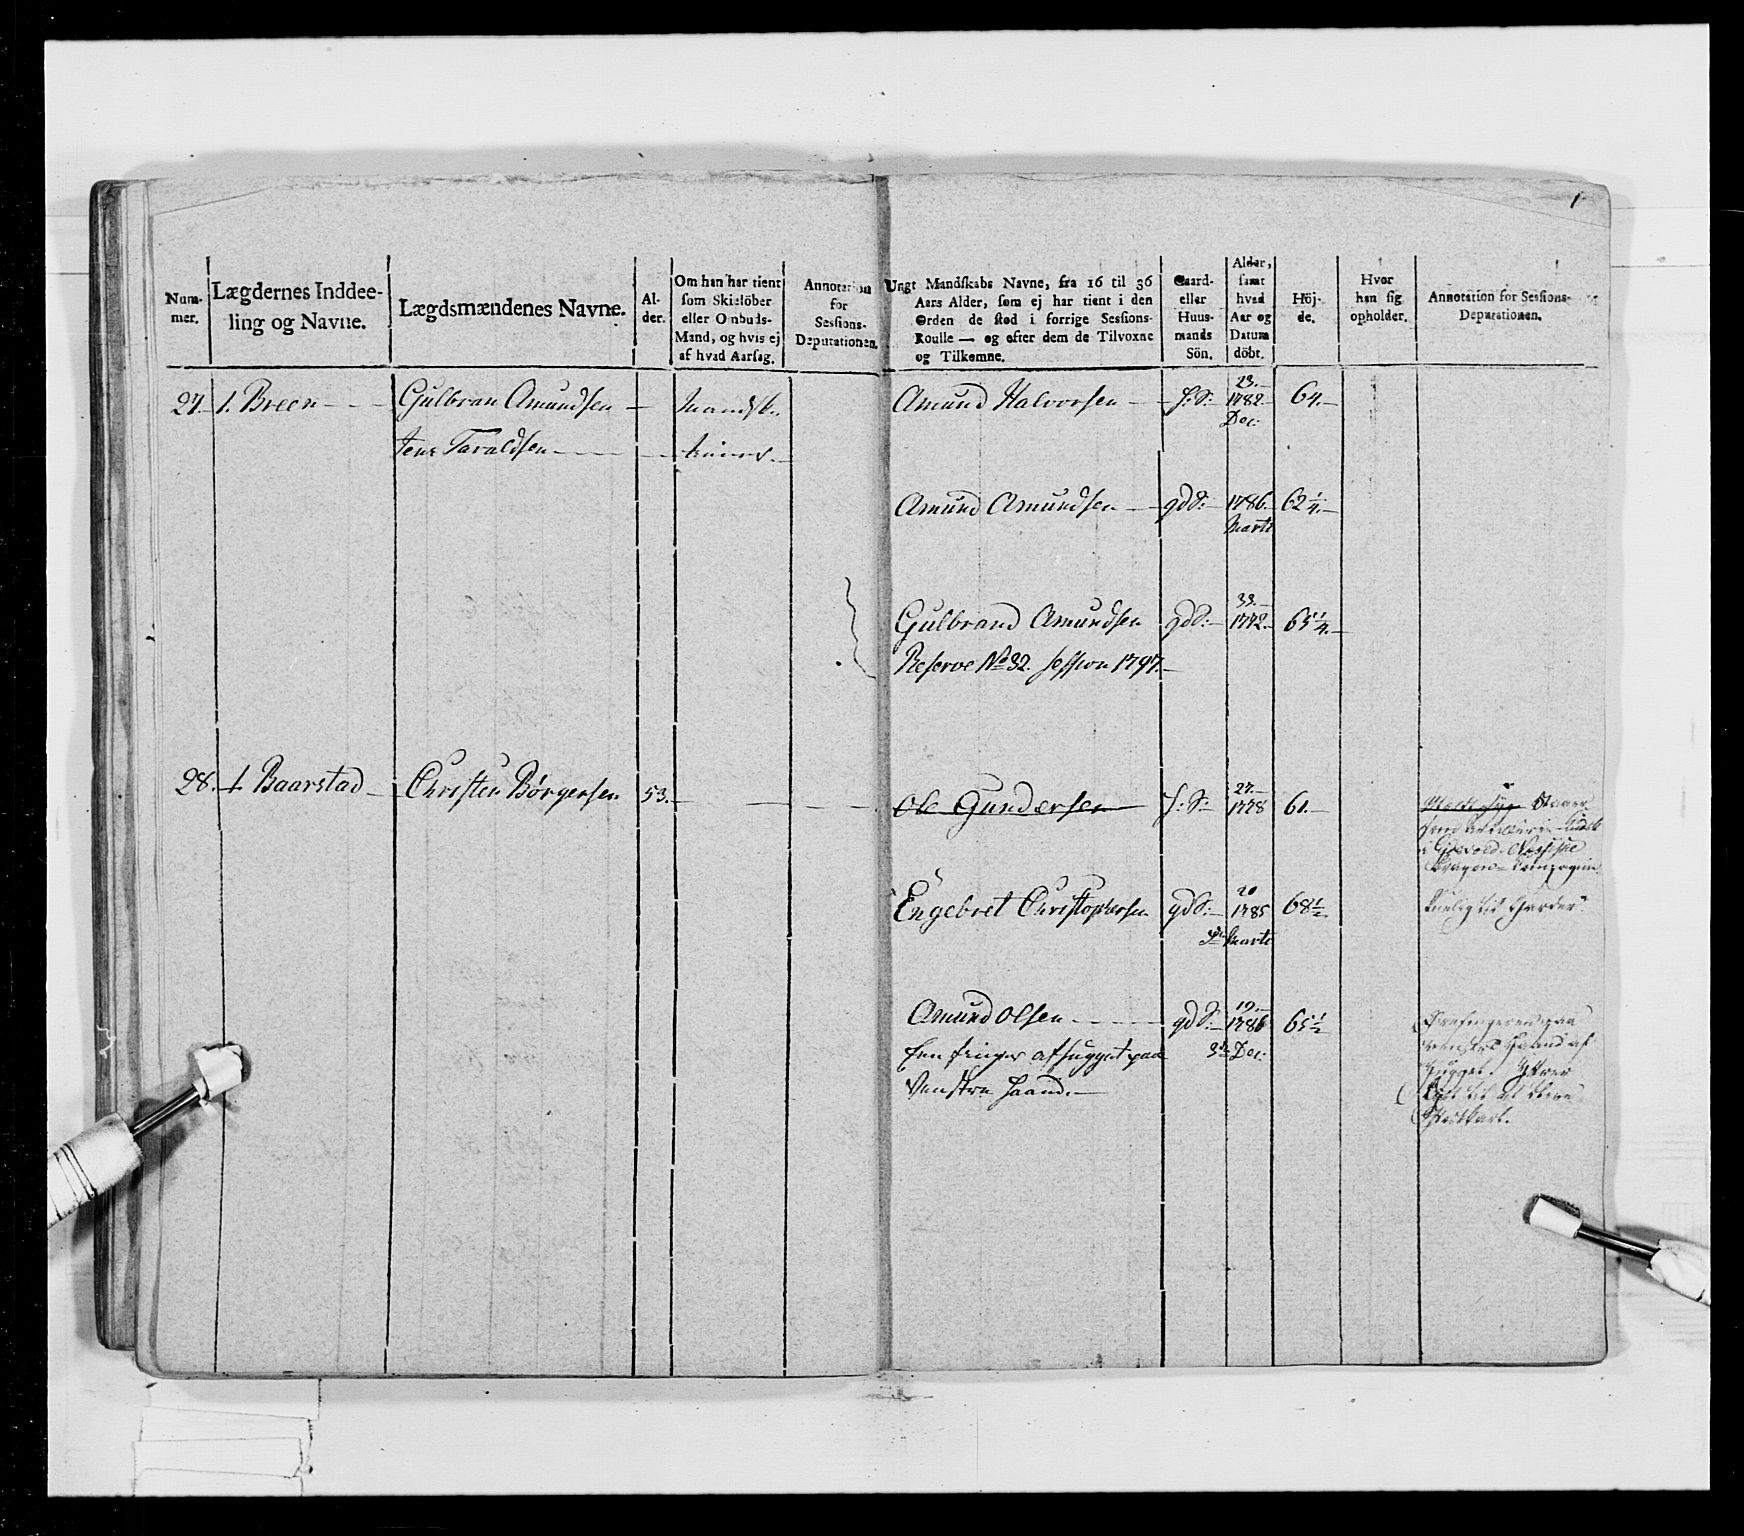 1
Num-
mer.
Lægdernes Inddee-
ling og Navne.
Lægdsmændenes Navne.
Al-
der.
Om han har tient
som Skieløber
eller Ombuds-
Mand, og hvis ej
af hvad Aarsag.
Annotation
for
Sessions-
Deputationen.
Ungt Mandskabs Navne, fra 16 til 36
Aars Alder, som ej har tient i den
Orden de stod i forrige Sessions-
Roulle — og efter dem de Tilvoxne
og Tilkomne.
Gaard-
eller
Huus-
mands
Sön.
Alder,
samt
hvad
Aar og
Datum
döbt.
Höj-
de.
Hvor
han sig
opholder.
Annotation for Sessions-
Deputationen.
27. 1. Breen Gulbran Amundsen
Jens Taraldsen
Amund Halvorsen f: S: 23. 1782. Dec: 64.
Amund Amundsen gd S: 1786. Marti 62 1/4.
Gulbrand Amundsen gd S: 33. 1772. 65 1/4.
Reserve No 32. session 1797.
28. 1 Baarstad Christen Börgersen 53.
Ole Gundersen f: S: 27. 1778 61.
Engebret Christophersen gd S: 20 1785 Marti 68 1/2.
Amund Olsen gd S: 19. 1786 3de Dec: 65 1/2
Een finger afhugget paa
Venstre Haand.